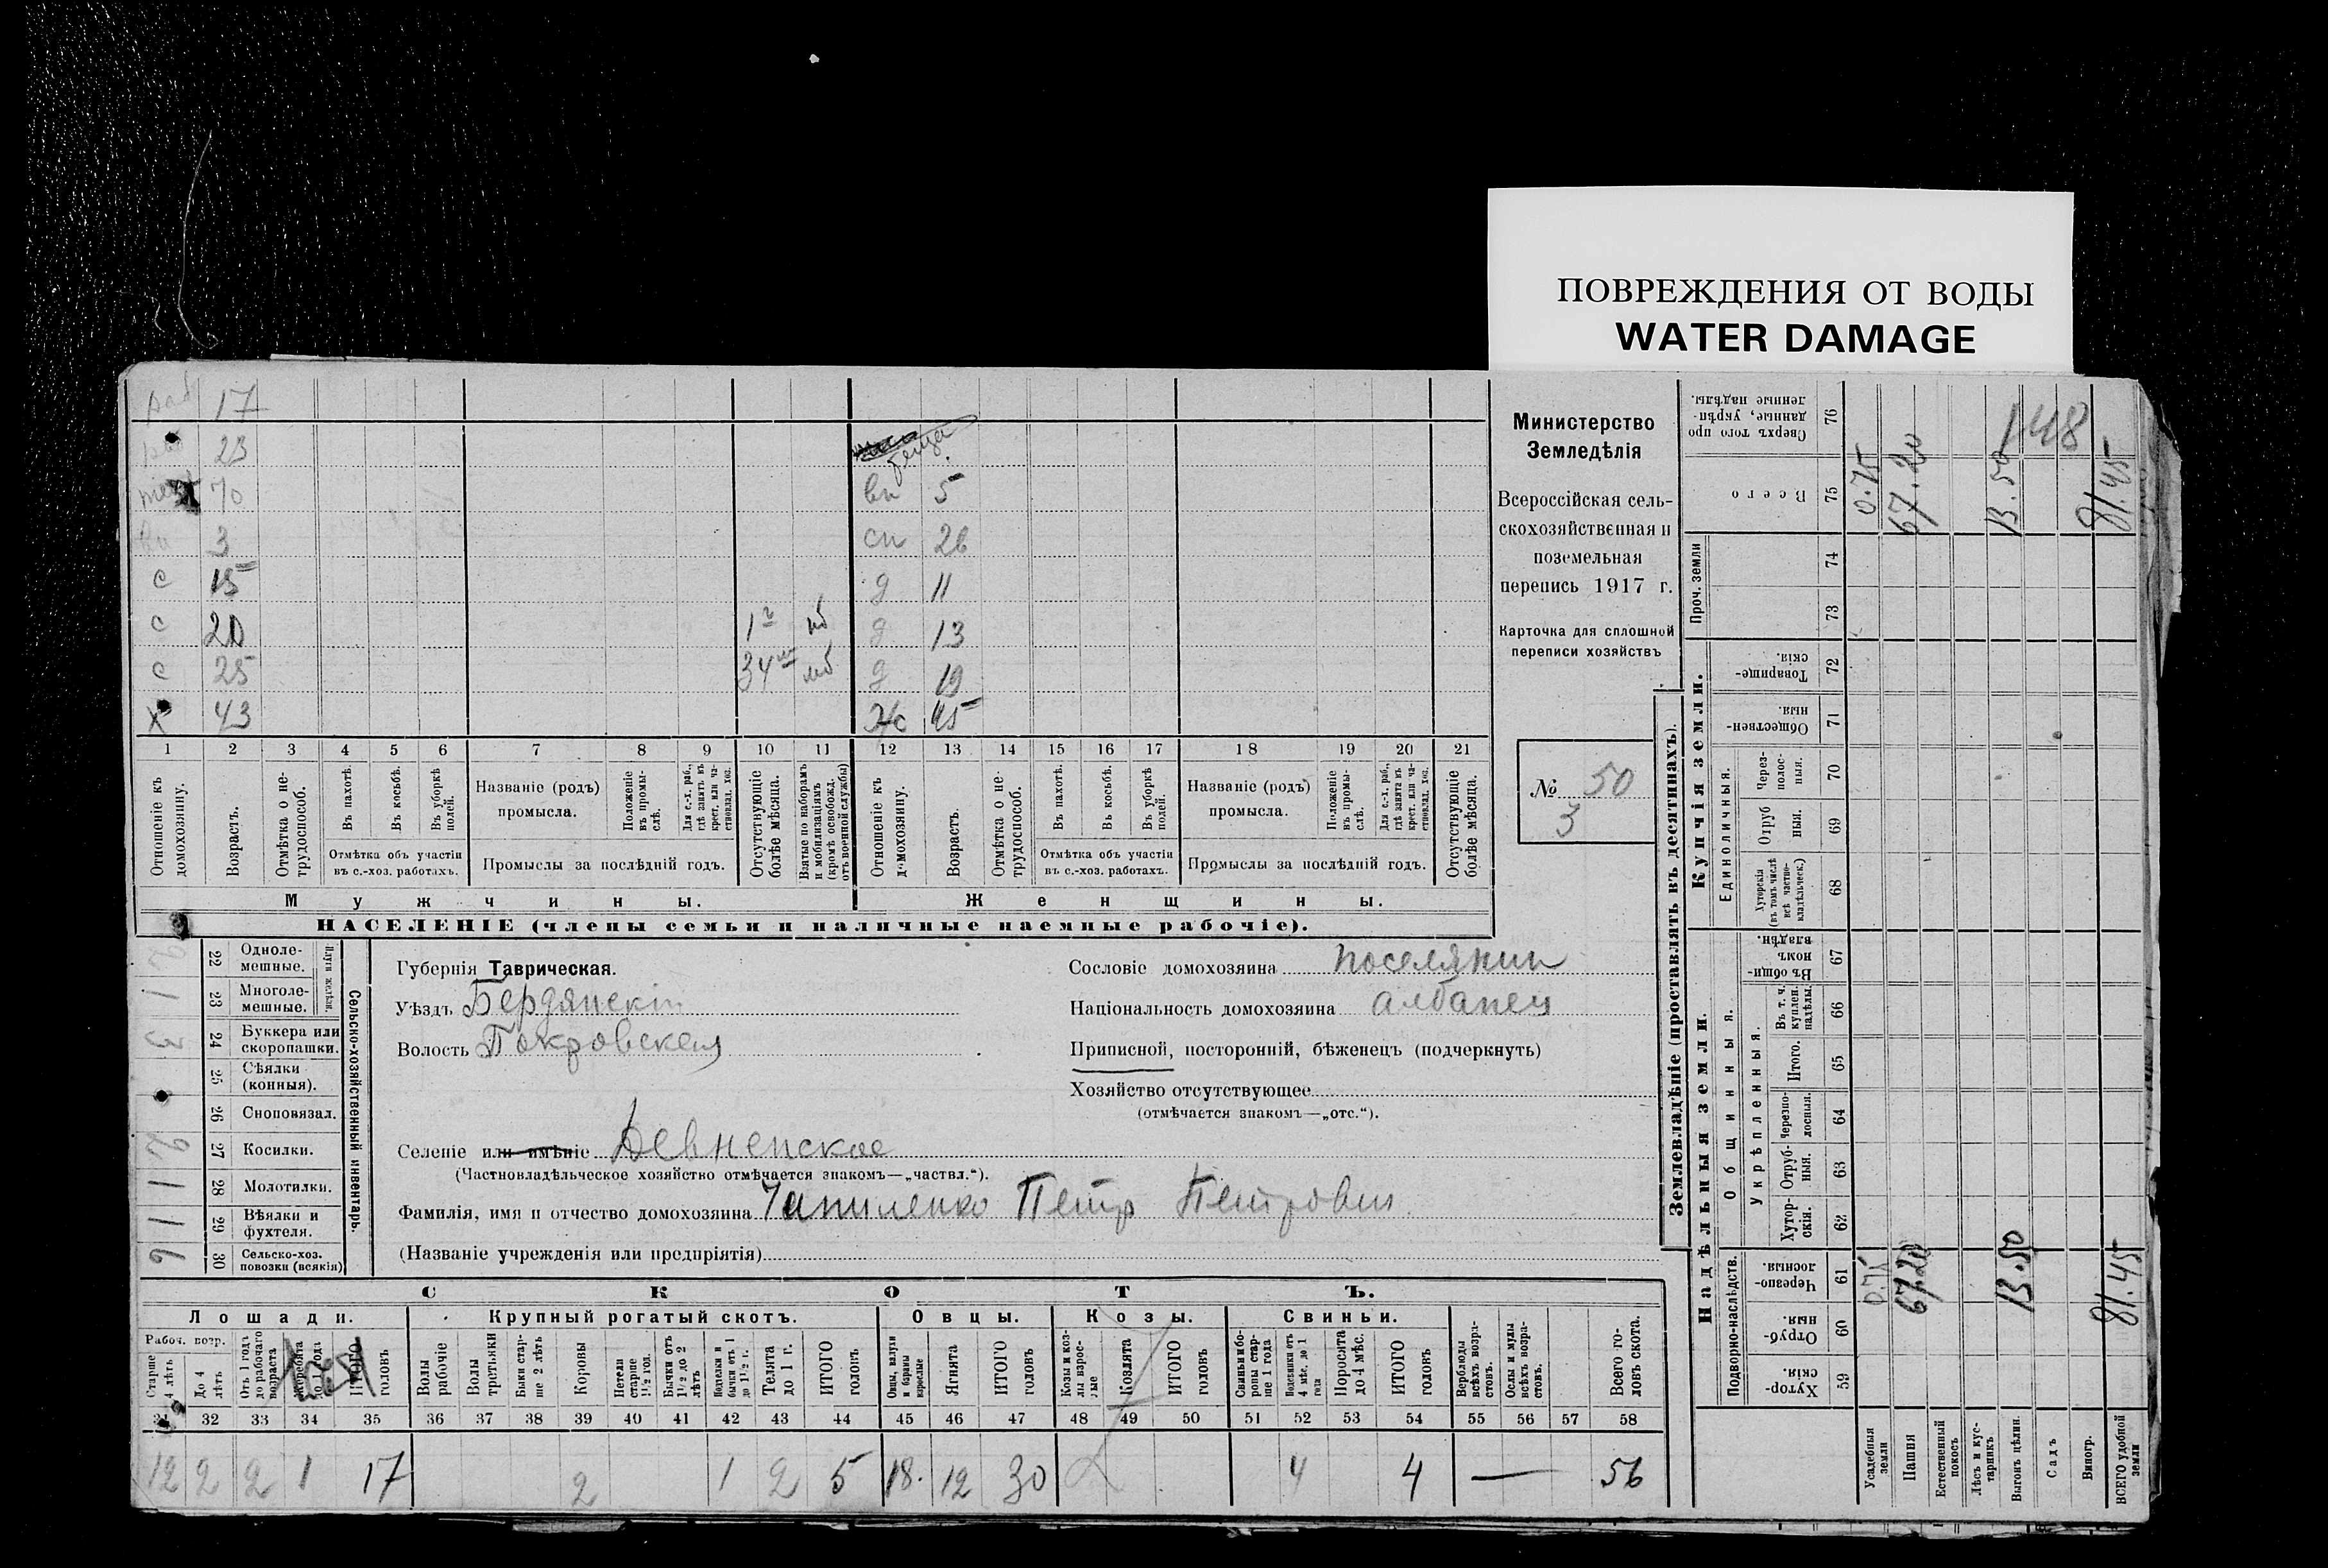 ПОВРЕЖДЕНИЯ ОТ ВОДЫ
WATER DAMAGE
раб 17
23
70
3
с 15
с 20 1 г нб
с 25 34 мб
х 43
теща
вн 5
сн 26
д 11
д 13
д 19
ж 45
1 2 3 4 5 6 7 8 9 10 11 12 13 14 15 16 17 18 19 20 21
Отношеніе къ домохозяину.
Возрастъ.
Отмѣтка о не-трудоспособ.
Въ пахотѣ.
Въ косьбѣ.
Въ уборкѣ полей.
Отмѣтка объ участіи въ с.-хоз. работахъ.
Названіе (родъ) промысла.
Положеніе въ промы-слѣ.
Для с.-х. раб., гдѣ занятъ въ крест. или ча-ствовлад. хоз.
Промыслы за послѣдній годъ.
Отсутствующіе болѣе мѣсяца.
Взятые по наборамъ и мобилизаціямъ (кромѣ освобожд. отъ военной службы)
Отношеніе къ домохозяину.
Возрастъ.
Отмѣтка о не-трудоспособ.
Въ пахотѣ.
Въ косьбѣ.
Въ уборкѣ полей.
Отмѣтка объ участіи въ с.-хоз. работахъ.
Названіе (родъ) промысла.
Положеніе въ промы-слѣ.
Для с.-х. раб., гдѣ занята въ крест. или ча-ствовлад. хоз.
Промыслы за послѣдній годъ.
Отсутствующіе болѣе мѣсяца.
Мужчины.
Женщины.
НАСЕЛЕНІЕ (члены семьи и наличные наемные рабочіе).
Министерство
Земледѣлія
Всероссійская сель-
скохозяйственная и
поземельная
перепись 1917 г.
Карточка для сплошной
переписи хозяйствъ
№ 50
3
22 Одноле-мешные.
1 23 Многоле-мешные.
3 24 Буккера или скоропашки.
25 Сѣялки (конныя).
26 Сноповязал.
2 27 Косилки.
1 28 Молотилки.
1 29 Вѣялки и фухтеля.
30 Сельско-хоз. повозки (всякія)
Сельско-хозяйственный инвентарь.
Губернія Таврическая.
Уѣздъ Бердянскій
Волость Покровская
Сословіе домохозяина поселянин
Національность домохозяина албанец
Приписной, посторонній, бѣженецъ (подчеркнуть)
Хозяйство отсутствующее
(отмѣчается знакомъ—„отс.“).
Селеніе или имѣніе Девненское
(Частновладѣльческое хозяйство отмѣчается знакомъ—„частвл.“).
Фамилія, имя и отчество домохозяина Петр Петрович
(Названіе учрежденія или предпріятія)
СКОТЪ.
Лошади. Крупный рогатый скотъ. Овцы. Козы. Свиньи.
Рабоч. возр.
Старше 4 лѣтъ
До 4 лѣтъ
Отъ 1 года до рабочаго возраста
Жеребята до 1 года
ИТОГО головъ
Волы рабочіе
Волы третьяки
Быки стар-ше 2 лѣтъ
Коровы
Нетели старше 1½ год.
Бычки отъ 1½ до 2 лѣтъ
Подтелки и бычки отъ 1 до 1½ г.
Телята до 1 г.
ИТОГО головъ
Овцы, валухи и бараны взрослые
Ягнята
ИТОГО головъ
Козы и коз-лы взрос-лые
Козлята
ИТОГО головъ
Свиньи и бо-ровы стар-ше 1 года
Подсвинки отъ 4 мѣс. до 1 года
Поросята до 4 мѣс.
ИТОГО головъ
Верблюды всѣхъ возра-стовъ.
Ослы и мулы всѣхъ возра-стовъ.
Всего го-ловъ скота.
31 32 33 34 35 36 37 38 39 40 41 42 43 44 45 46 47 48 49 50 51 52 53 54 55 56 57 58
12 2 2 1 17 2 1 2 5 18 12 30 4 4 — 56
Землевладѣніе (проставлять въ десятинахъ).
Надѣльныя земли. Купчія земли. Проч. земли
Подворно-наслѣдств. Общинныя. Укрѣпленныя. Единоличныя.
Хутор-скія. 59
Отруб-ныя. 60
Черезпо-лосныя. 61
Хутор-скія. 62
Отруб-ныя. 63
Черезпо-лосныя. 64
Итого. 65
Въ т. ч. куплен. надѣлы. 66
Въ общин-номъ владѣн. 67
Хуторскія (въ томъ числѣ всѣ частно-владѣльческ.) 68
Отруб ныя. 69
Через-полос-ныя. 70
Обществен-ныя. 71
Товарище-скія. 72
73
74
Всего 75
Сверхъ того про данные, укрѣп-ленные надѣлы. 76
Усадебныя земли 0.75 0.75
Пашня 67.20 67.20
Естественный покосъ
Лѣсъ и кус-тарникъ
Выгонъ цѣлин. 13.50 13.50
Садъ
Виногр.
ВСЕГО удобной земли 81.45 81.45
148